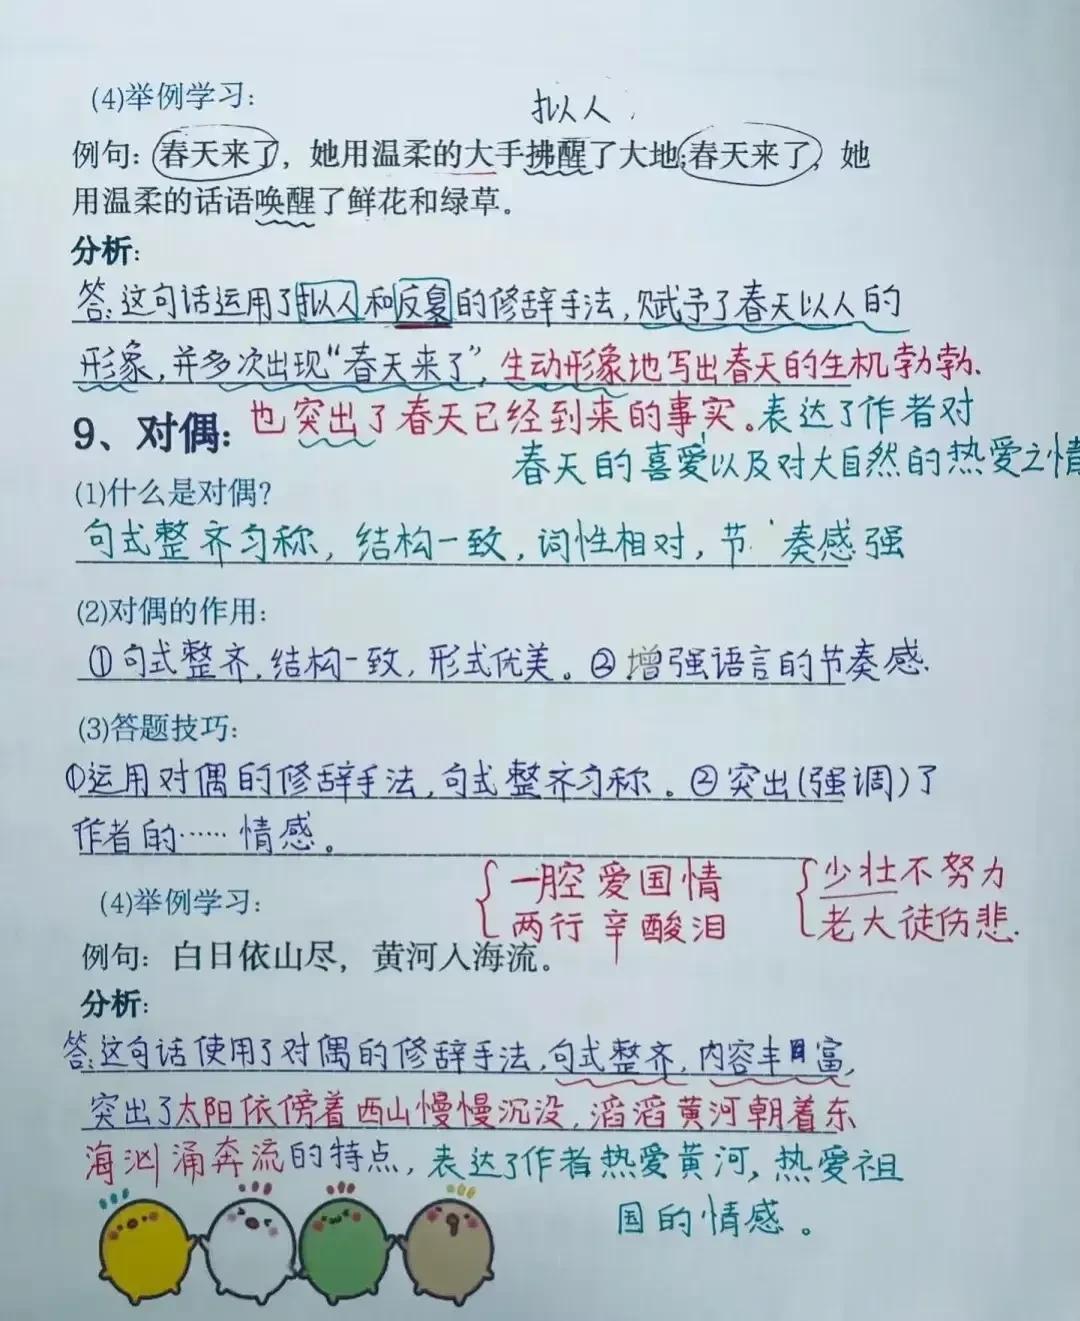 (4)举例学习:
拟人
例句:春天来了,她用温柔的大手拂醒了大地;春天来了,她
用温柔的话语唤醒了鲜花和绿草。
分析:
答:这句话运用了拟人和反复的修辞手法,赋予了春天以人的
形象,并多次出现“春天来了”,生动形象地写出春天的生机勃勃.
也突出了春天已经到来的事实。表达了作者对
春天的喜爱以及对大自然的热爱之情
9、对偶:
(1)什么是对偶?
句式整齐匀称,结构一致,词性相对,节奏感强
(2)对偶的作用:
①句式整齐,结构一致,形式优美。②增强语言的节奏感.
(3)答题技巧:
①运用对偶的修辞手法,句式整齐匀称。②突出(强调)了
作者的……情感。
一腔爱国情
两行辛酸泪
少壮不努力
老大徒伤悲.
(4)举例学习:
例句:白日依山尽,黄河入海流。
分析:
答:这句话使用了对偶的修辞手法,句式整齐,内容丰富,
突出了太阳依傍着西山慢慢沉没,滔滔黄河朝着东
海汹涌奔流的特点,表达了作者热爱黄河,热爱祖
国的情感。